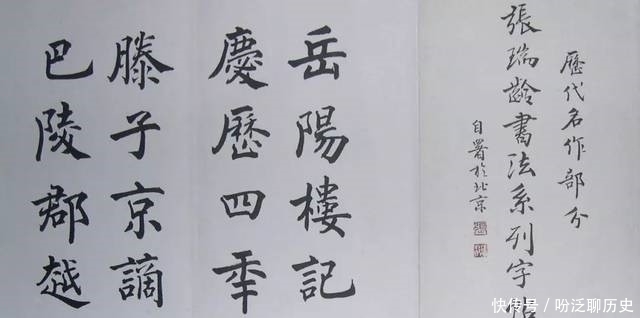 歷代名作部分
張瑞齡書法系列字帖
自署於北京
岳陽樓記
慶歷四年
滕子京謫
巴陵郡越
快传号 / 吩泛聊历史